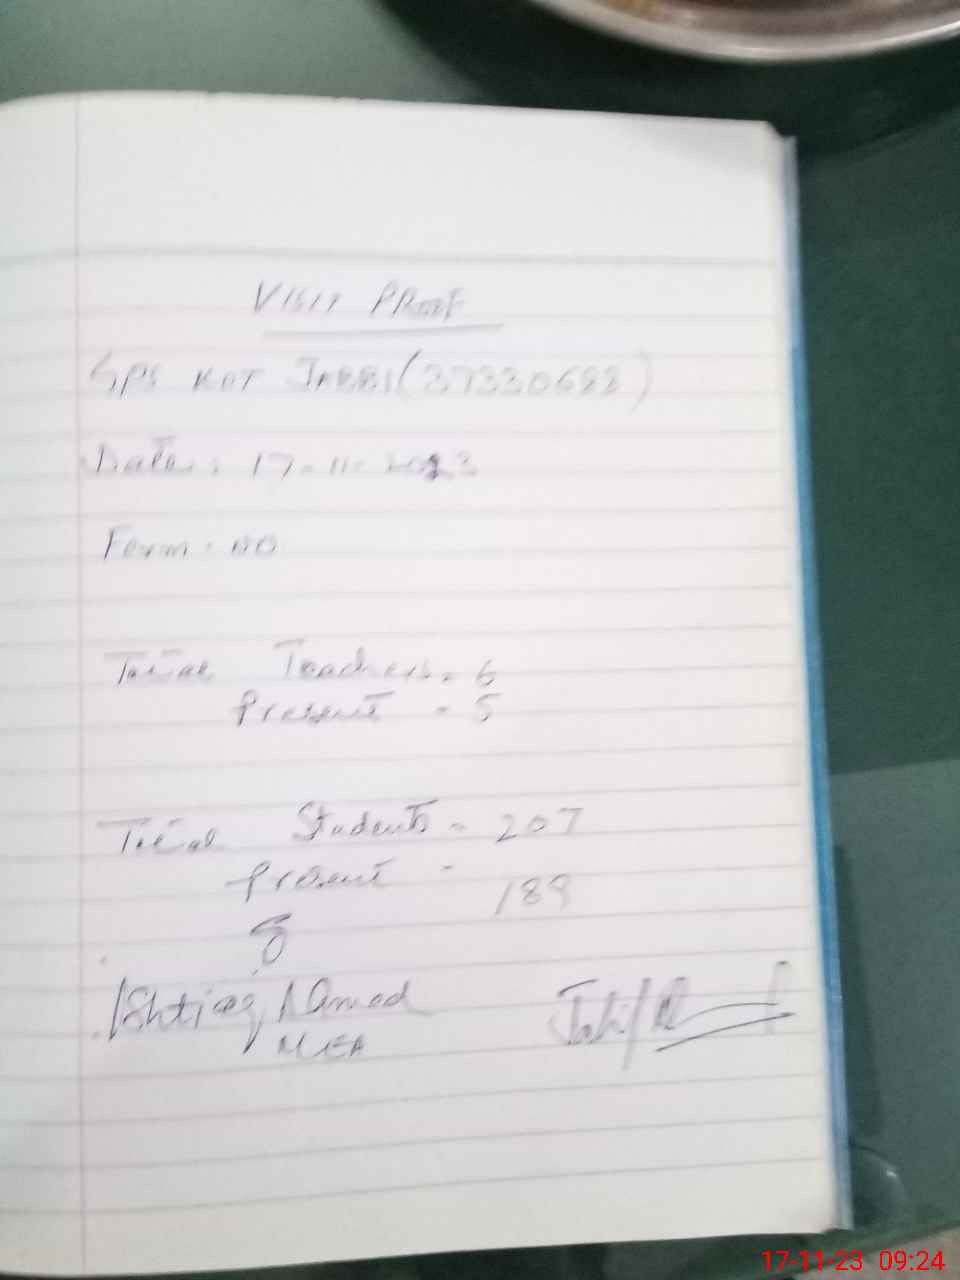 VISIT PROOF
GPS KOT JABBI (37330688)
Date: 17-11-2023
Form: NO
Total Teachers = 6
Present = 5
Total Students = 207
Present = 189
Ishtiaq Ahmed
MEA
17-11-23 09:24